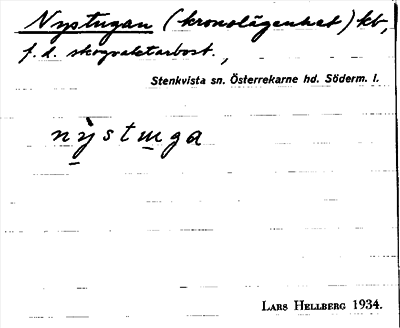 Nystugan (kronolägenhet) kb,
f. d. skogvaktarbost.,
Stenkvista sn. Österrekarne hd. Söderm. l.
nỳstuga
LARS HELLBERG 1934.